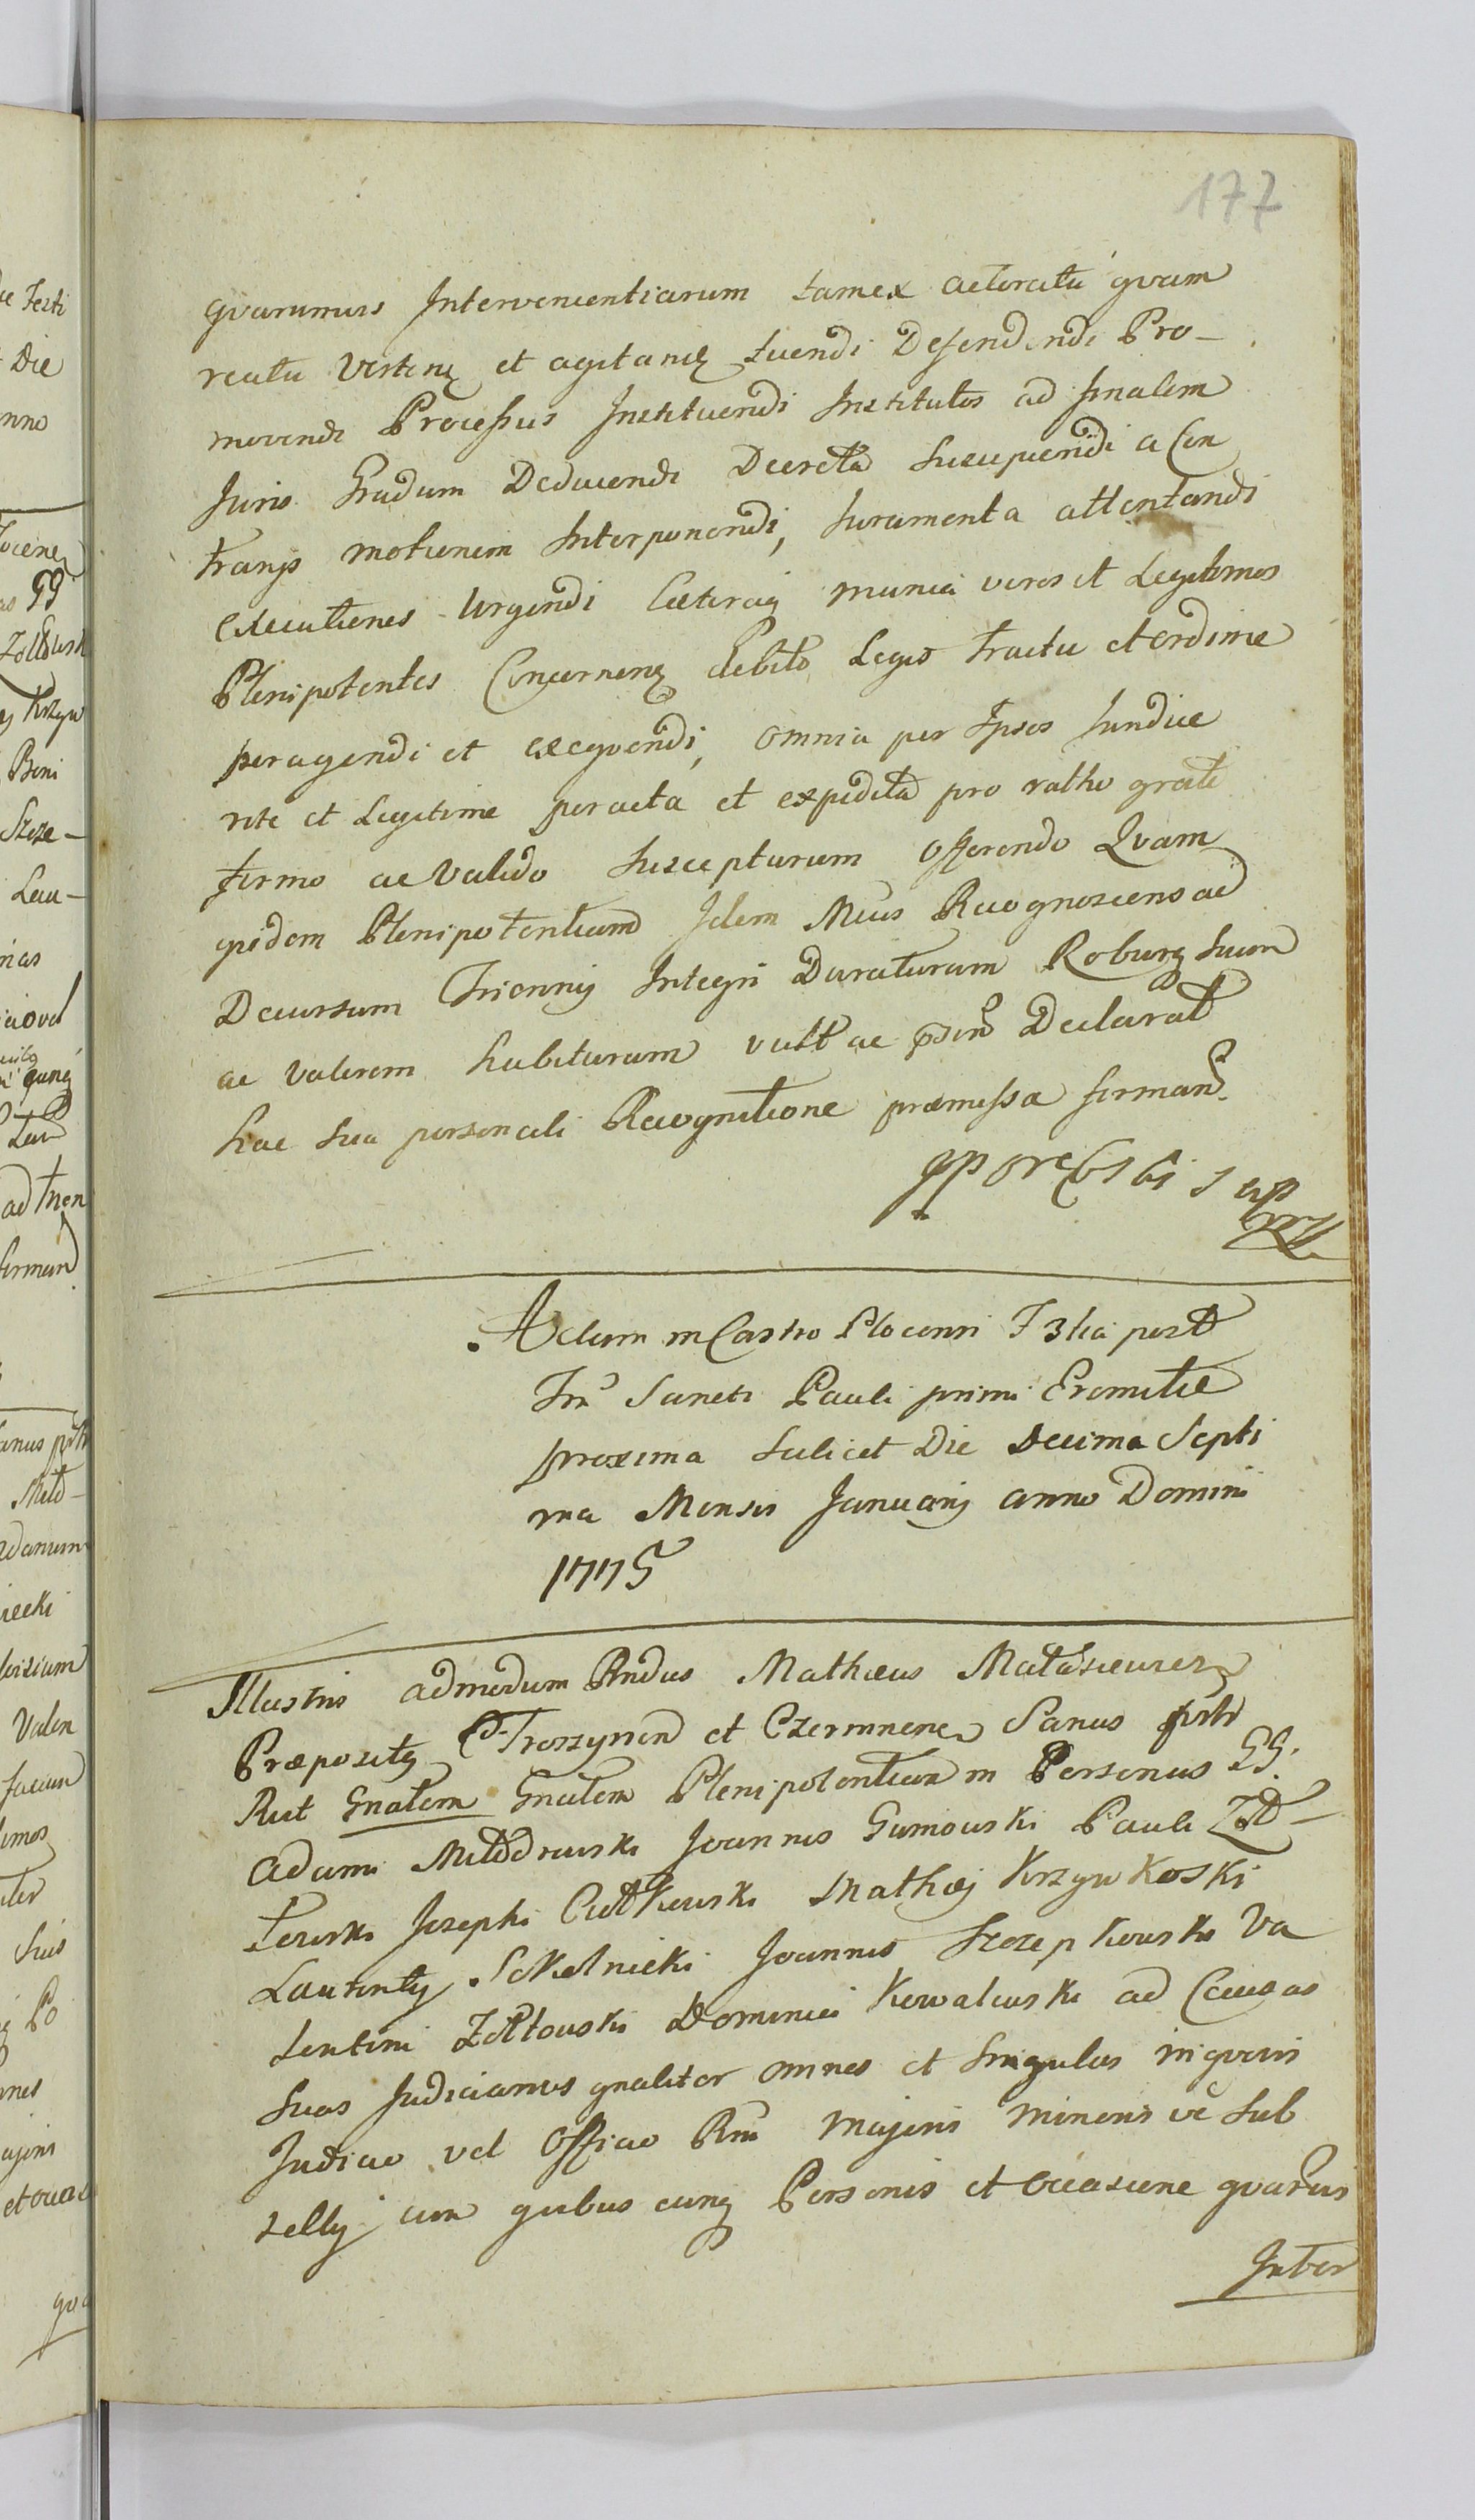 177
qvarumvis Intervenientiarum tam ex actoratu qvam
reatu Verten et agitanq tuendi Defendendi Pro-
movendi Processus Instituendi Institutos ad finalem
Juris Gradum Deducendi Decreta Suscipiendi a Con
trariis motionem Interponendi, Juramenta attentandi
executiones Urgendi Cæteraq munia veros et Legitimos
Plenipotentes Concernenq debito Legis tractu et ordine
peragendi et exeqvendi, omnia per Ipsos Jundice
rite et Legitime peracta et expedita pro ratho grato
firmo ac Valido Suscepturum offerendo Qvam
qvidem Plenipotentiam Idem Mcus Recognoscens ad
Decursum Triennij Integri Duraturam Roburq Suum
ac Valorem habituram vult ac Declarat
hac Sua personali Recognitione præmissa firman.
Actum in Castro Plocensi post
Sancti Pauli primi Eremitæ
proxima Scilicet Die Decima Septi
ma Mensis Januarij anno Domini
1775
Illustris admodum Rndus Mathæus Matasiewicz
Præpositq Troszynen et Czermnenen Sanus
Rut Gnalem Gnalem Plenipotentiam in Personas GG.
Adami Miłodrowski Joannis Gumowski Pauli Zoł-
towski Josephi Ciołkowski Mathæj Krzywkoski
Laurentij Sokolnicki Joannis Szczepkowski Va
lentini Zołtowski Dominici Kowalewski ad Causas
Suas Judiciarias gnaliter omnes et Singulas in qvovis
Judicio vel Officio Rni Majoris Minoris vê Sub
sellij cum qvibus cunq Personis et Occasione qvarvis
Inter